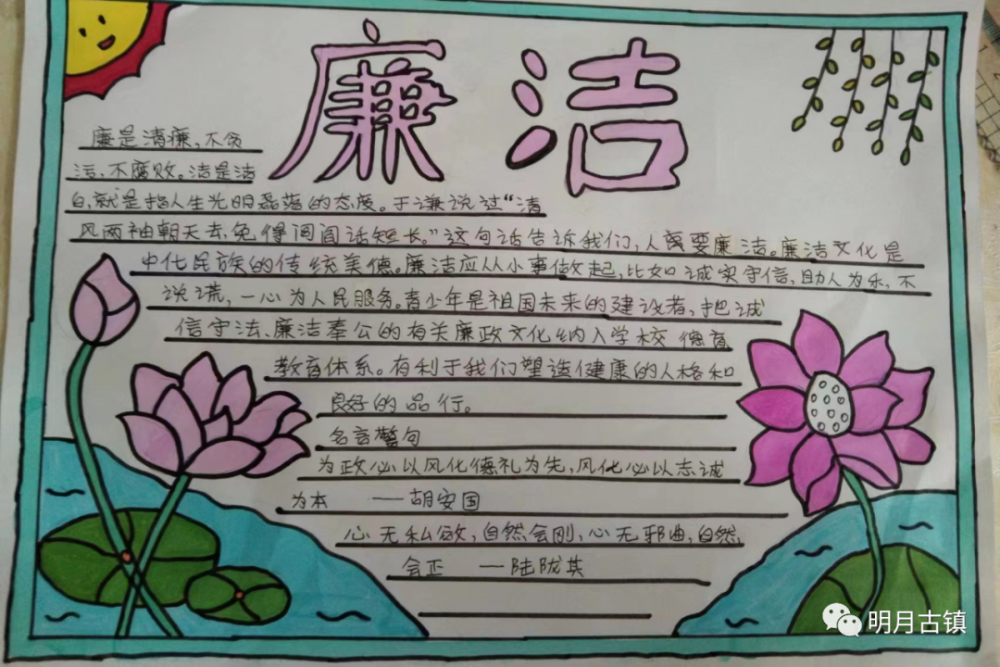 廉洁
廉是清廉,不贪
污,不腐败。洁是洁
白,就是指人生光明磊落的态度。于谦说过“清
风两袖朝天去,免得闾阎话短长。”这句话告诉我们,人需要廉洁。廉洁文化是
中化民族的传统美德。廉洁应从小事做起,比如诚实守信,助人为乐,不
说谎,一心为人民服务。青少年是祖国未来的建设者,把诚
信守法、廉洁奉公的有关廉政文化纳入学校德育
教育体系。有利于我们塑造健康的人格和
良好的品行。
名言警句
为政必以风化德礼为先,风化必以志诚
为本 ——胡安国
心无私欲,自然会刚,心无邪曲,自然
会正 ——陆陇其
明月古镇